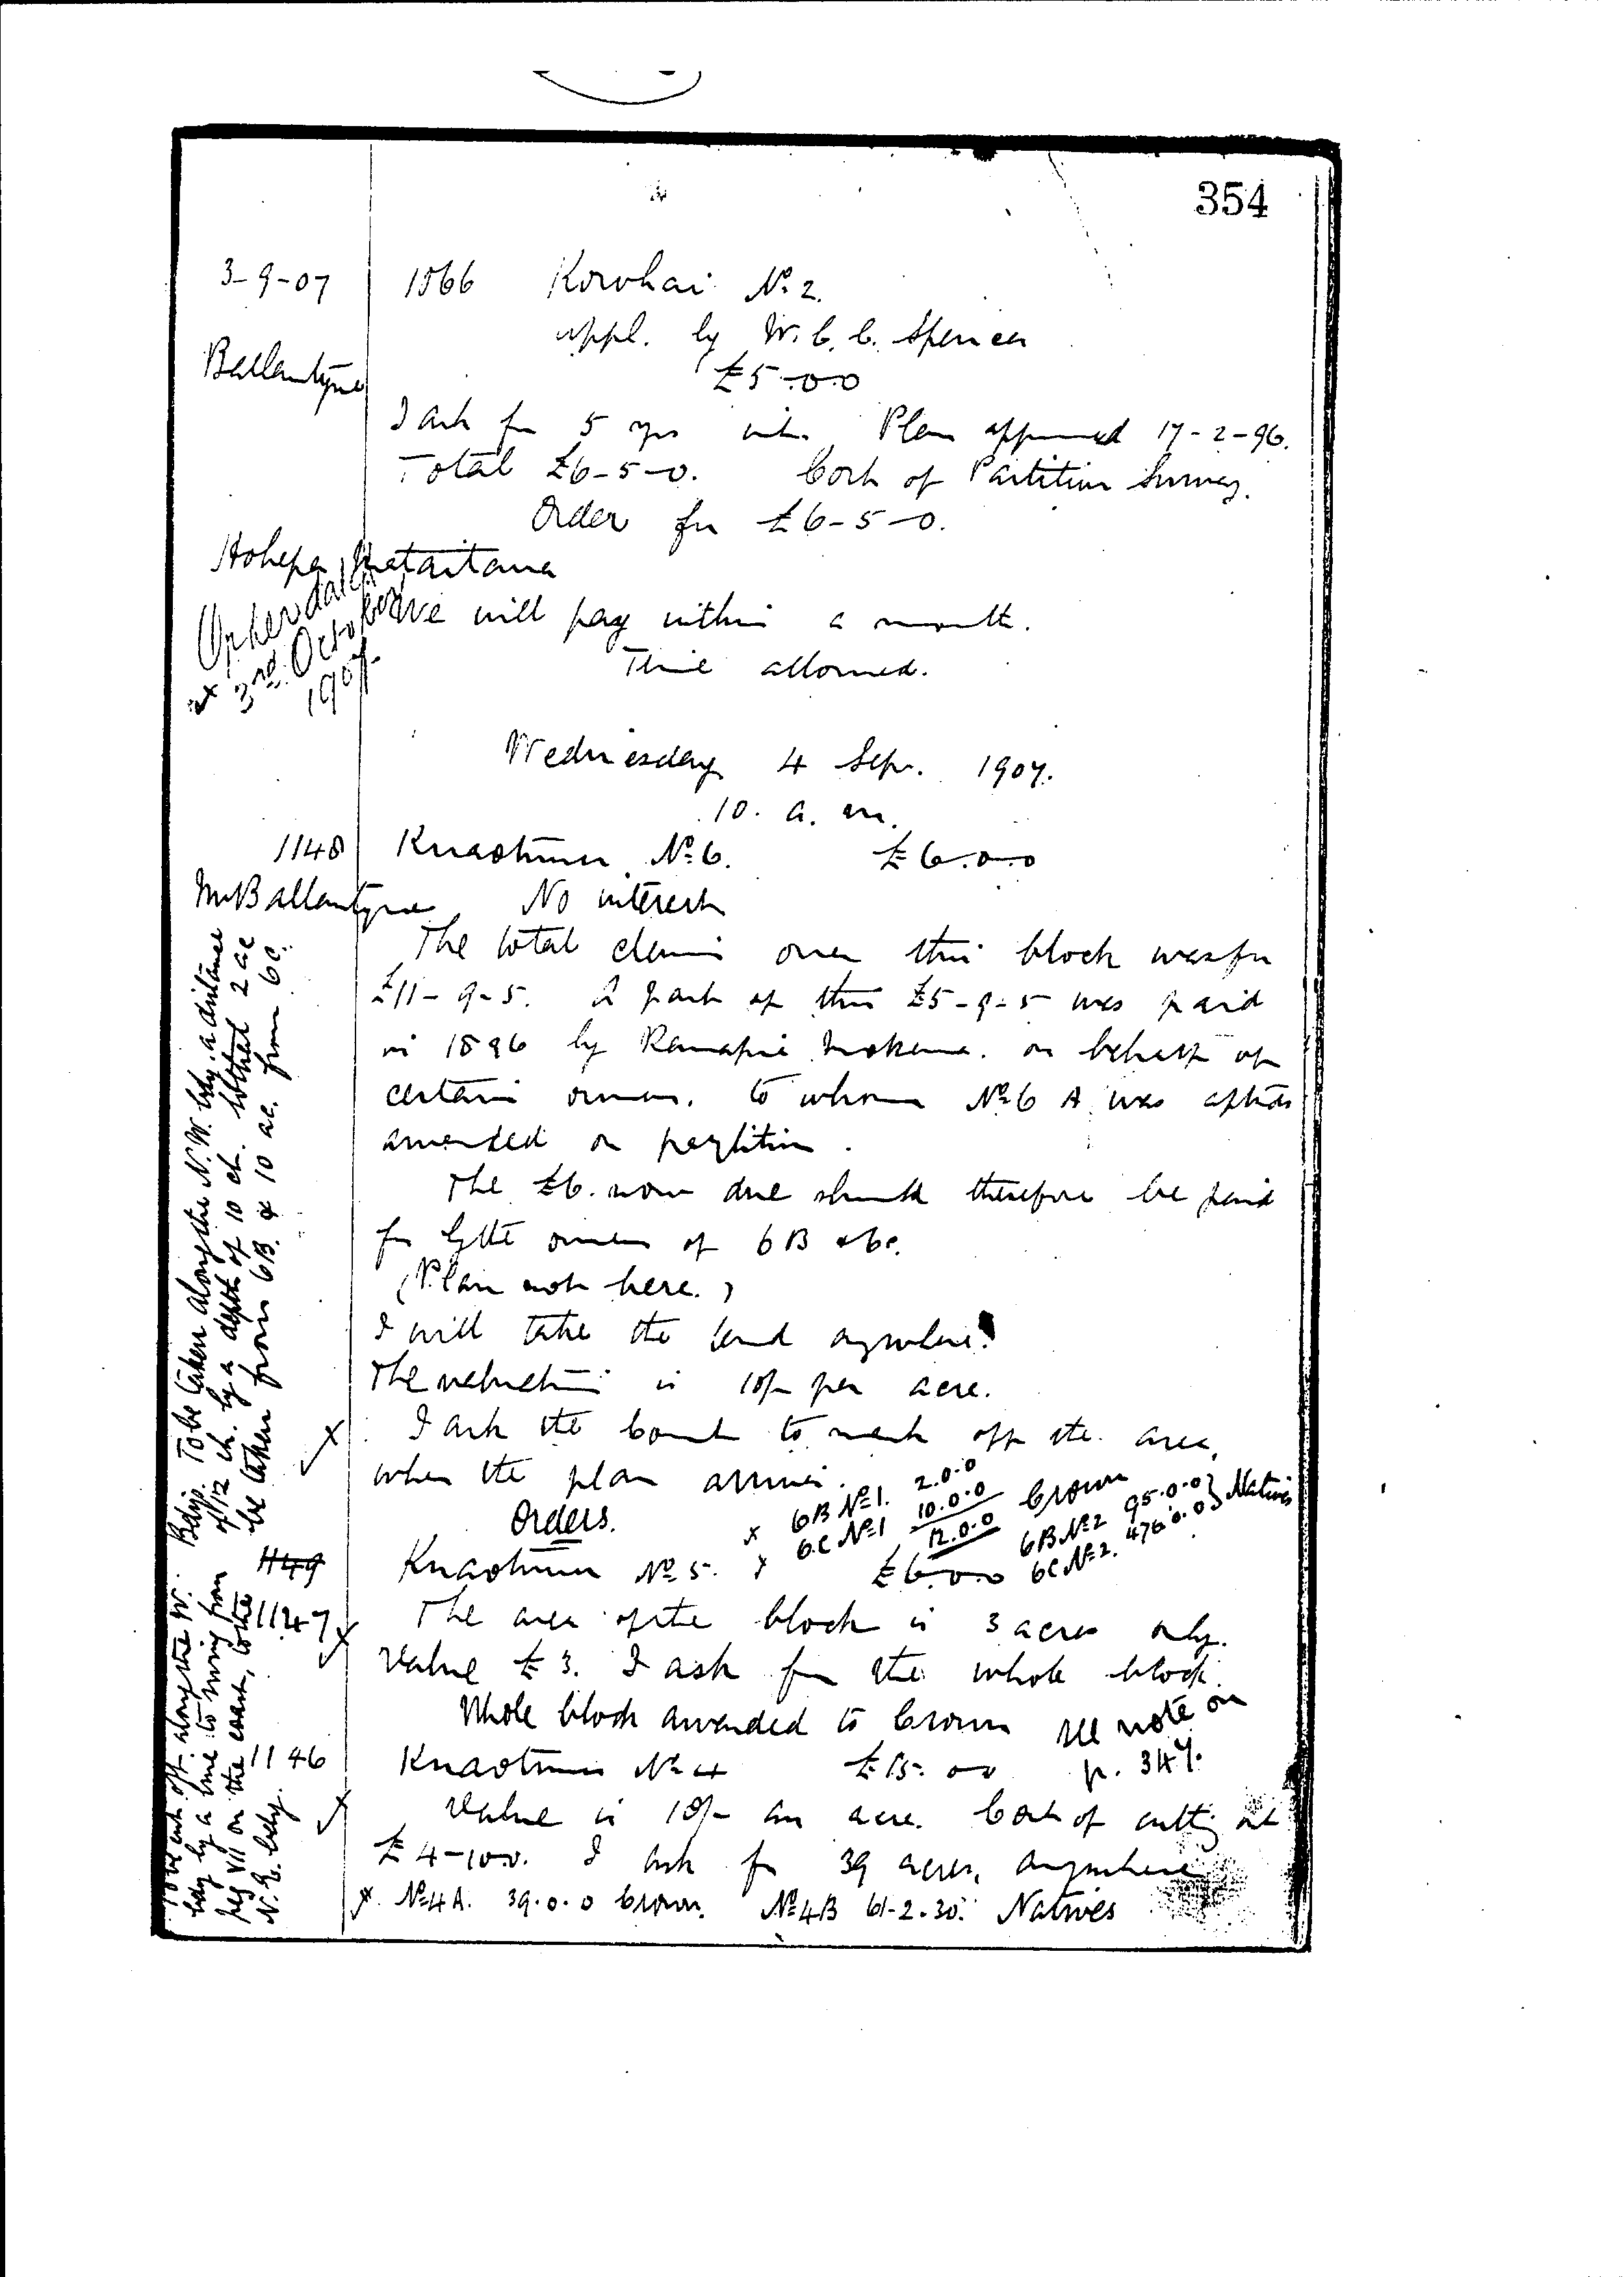 354
3-9-07
1566 Kowhai No 2.
appl. by W. C. C. Spencer
£5-0-0
Ballantyne
I ask for 5 yrs int. Plan approved 17-2-96.
Total £6-5-0. Cost of Partition Survey.
Order for £6-5-0.
Hohepa Mataitaua
We will pay within a month.
Time allowed.
Order dated
3rd October
1907.
Wednesday 4 Sep. 1907.
10. a. m.
1148 Kuaotunu No 6. £6.0.0
Mr Ballantyne No interest
The total claim over this block was for
£11-9-5. A part of this £5-9-5 was paid
in 1896 by on behalf of
certain owners. to whom No 6 A was after
awarded on partition.
The £6. now due should therefore be paid
for by the owners of 6B & 6C.
(Plan not here.)
I will take the land anywhere.
The valuation is 10/- per acre.
I ask the Court to mark off the area,
when the plan arrives.
Orders.
x 6B No 1. 2.0.0
x 6C No 1 10.0.0 Crown
12.0.0
6B No 2 95.0.0 } Natives
6C No 2. 476.0.0
Bdys. To be taken along the N.W. bdy a distance
of 12 ch. by a depth of 10 ch. so that 2 ac
be taken from 6B. & 10 ac. from 6C.
1149
1147
Kuaotunu No 5. £6.0.0
The area of the block is 3 acres only.
Value £3. I ask for the whole block.
Whole block awarded to Crown see note on
p. 347.
1146 Kuaotunu No 4 £15. 0 0
Value is 10/- an acre. Cost of cutting out
£4-10-0. I ask for 39 acres, anywhere
x. No 4A. 39.0.0 Crown. No 4B 61-2-30. Natives
To be cut off along the W.
bdy by a line to from
peg VII on the coast, to the
N.E. bdy.